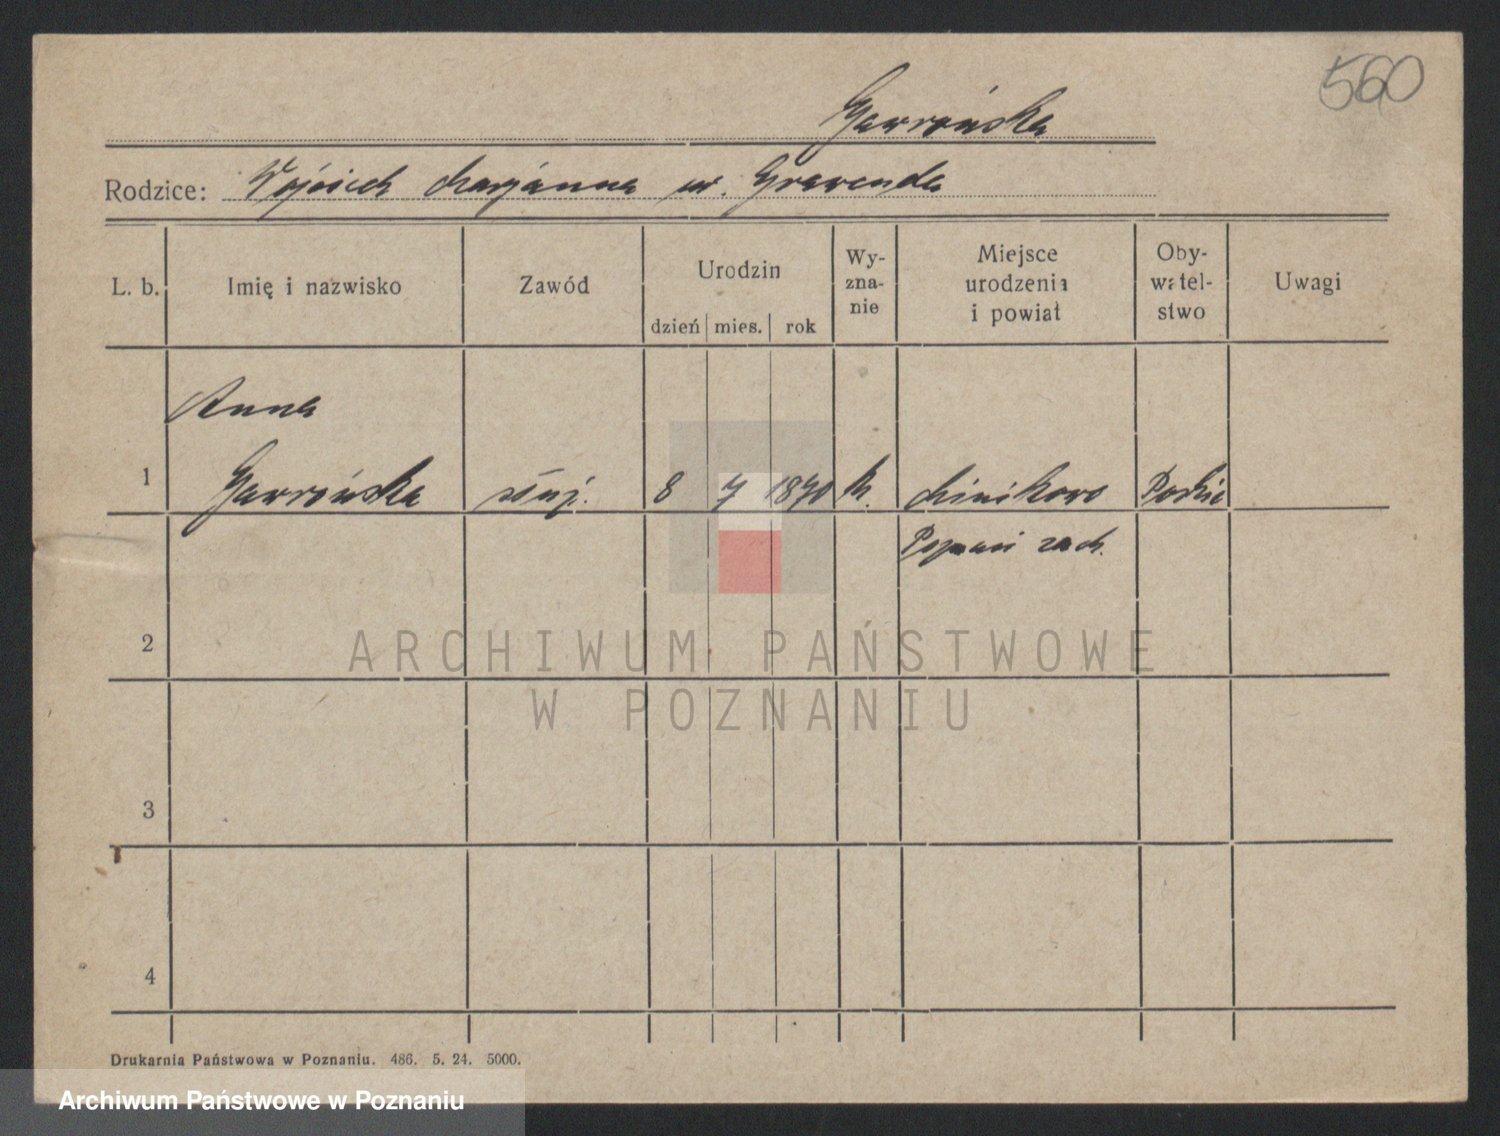 560
Gawrońska
Rodzice: Wojciech Marjanna ur.
L. b. Imię i nazwisko Zawód Urodzin dzień mies. rok Wy-zna-nie Miejsce urodzenia i powiat Oby-watel-stwo Uwagi
Anna
1 Gawrońska służ. 8 7 1870 k. Polskie
Poznań zach.
2
ARCHIWUM PAŃSTWOWE
W POZNANIU
3
4
Drukarnia Państwowa w Poznaniu. 486. 5. 24. 5000.
Archiwum Państwowe w Poznaniu